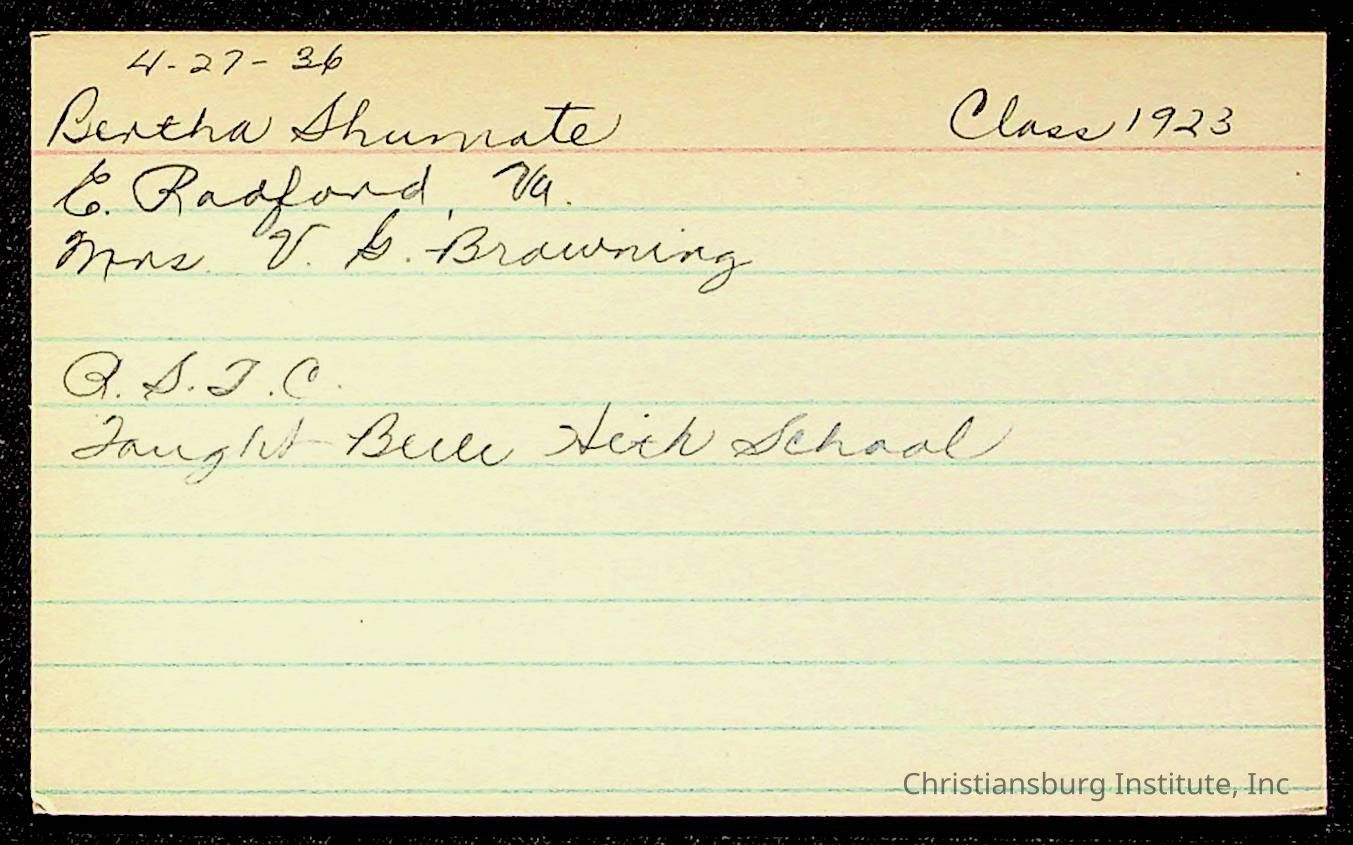 4-27-36
Bertha Shumate Class 1923
E. Radford, Va.
Mrs. V. G. Browning
R.S.T.C.
Taught High School
Christiansburg Institute, Inc